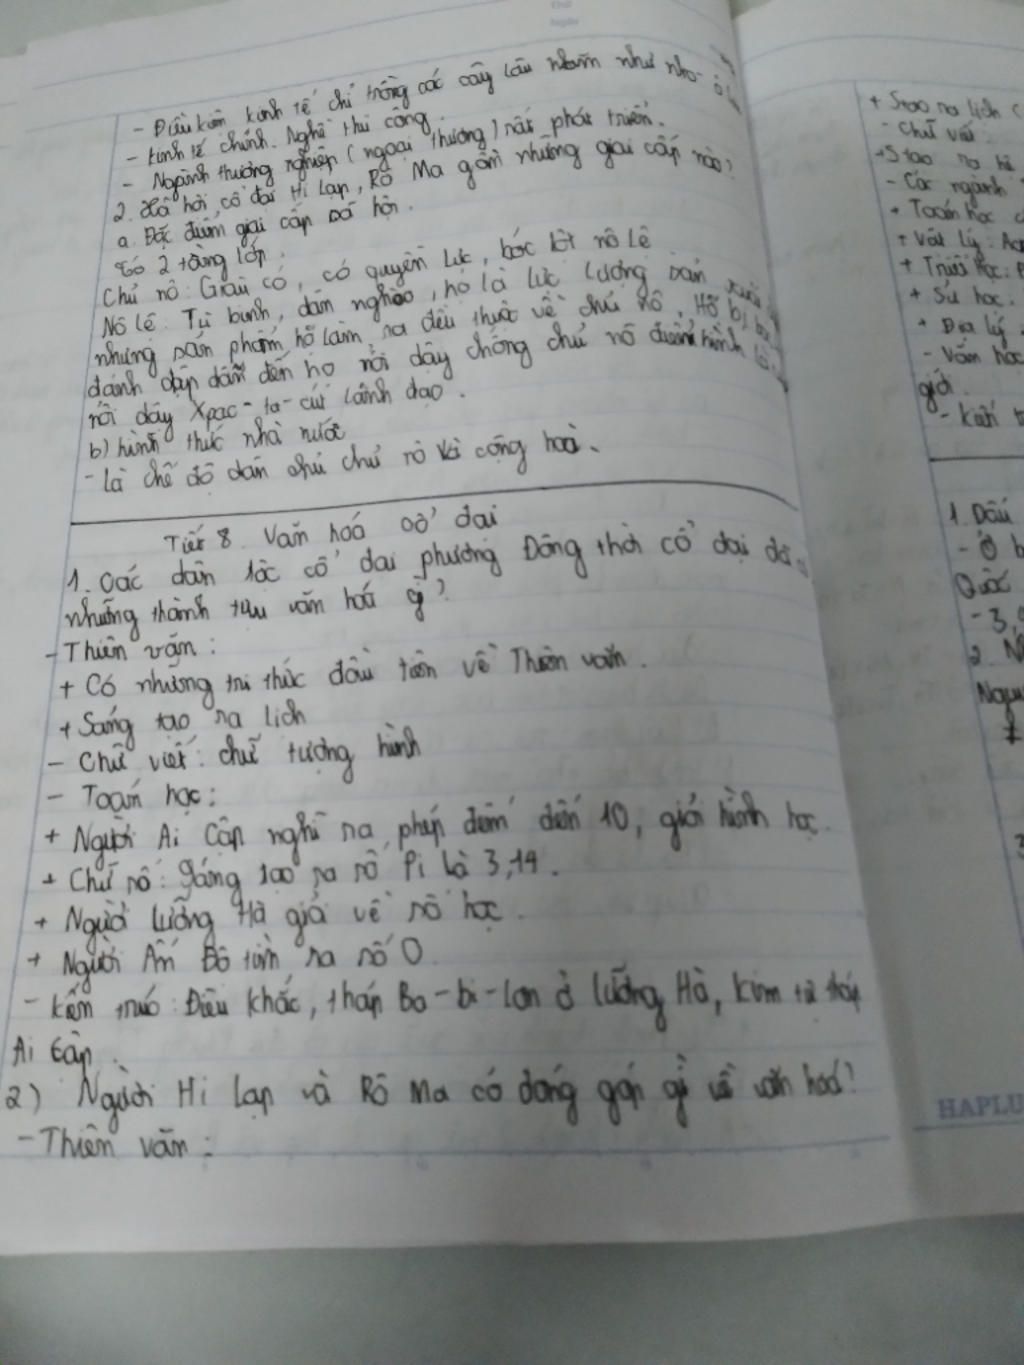 - Điều kiện kinh tế chỉ trồng các cây lâu năm như nho ô
- Kinh tế chính. Nghề thủ công.
- Ngành thương nghiệp (ngoại thương) rất phát triển.
2. Xã hội cổ đại Hi Lạp, Rô Ma gồm những giai cấp nào?
a. Đặc điểm giai cấp xã hội.
Có 2 tầng lớp.
Chủ nô: Giàu có, có quyền lực, bóc lột nô lệ
Nô lệ: Tù binh, dân nghèo, họ là lực lượng sản
những sản phẩm họ làm ra đều thuộc về chủ nô, Họ bị
đánh đập dẫn đến họ nổi dậy chống chủ nô điển hình là
nổi dậy Xpac-ta-cút lãnh đạo.
b) hình thức nhà nước
- là chế độ dân chủ chủ nô và cộng hoà.
Tiết 8. Văn hoá cổ đại
1. Các dân tộc cổ đại phương Đông thời cổ đại đã
những thành tựu văn hoá gì?
- Thiên văn:
+ Có những tri thức đầu tiên về Thiên văn.
+ Sáng tạo ra lịch
- Chữ viết: chữ tượng hình
- Toán học:
+ Người Ai Cập nghĩ ra phép đếm đến 10, giỏi hình học.
+ Chữ số: Sáng tạo ra số Pi là 3,14.
+ Người Lưỡng Hà giỏi về số học.
+ Người Ấn Độ tìm ra số 0.
- Kiến trúc: Điêu khắc, tháp Ba-bi-lon ở Lưỡng Hà, Kim tự tháp
Ai Cập.
2) Người Hi Lạp và Rô Ma có đóng góp gì về văn hoá?
- Thiên văn:
+ Sáng tạo ra lịch
- Chữ viết:
+ Sáng tạo ra hệ
- Các ngành
+ Toán học
+ Vật lý:
+ Triết học:
+ Sử học:
+ Địa lý
- Văn học
giới.
- Kiến
1. Dấu
- Ở
Quốc
- 3,
2.
HAPLU